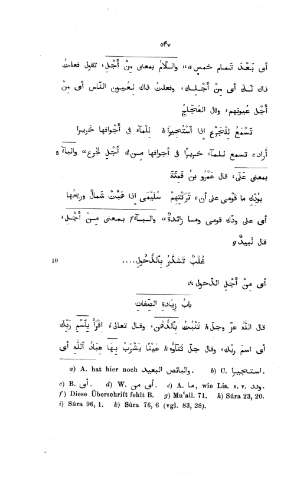 ٥٣٧
أى بَعْدَ تَمام خمسٍ a، واللامُ بمعنى مِنْ أَجْلِ، تقول فعلتُ
ذاك لَكَ أى مِنْ أَجْلِكَ، وفعلتُ ذاك لِعُيونِ النّاسِ أى مِنْ
أَجْلِ عُيونِهم، وقال العَجّاج
تَسْمَعُ لِلْجَرْعِ إذا ٱسْتُحِيرَا b لِلْمآءِ فى أَجْوافِها خَرِيرَا
أراد تسمع للمآء خَرِيرًا فى أجوافها مِن c أَجْلِ الجَرْعِ، والبآءُ
بمعنى عَلَى، قال عَمْرو بن قَمِئَة
بِوُدِّكِ ما قَوْمِى على أَنْ تَرَكْتُهُمْ سُلَيْمَى إذا هَبَّتْ شَمَالٌ ورِيحُها
أى على وُدِّكِ قومى وما زائدةٌ e، والبآءُ بمعنى مِنْ أَجْلِ،
قال لَبِيدٌ
10 غُلْبٌ تَشَذَّرُ بِٱلذُّحُولِ . . . . .
أى مِنْ أَجْلِ الذحول
بابُ زِيادَةِ الصِّفاتِ
قال اللّٰهُ عزّ وجلّ h تَنْبُتُ بِٱلدُّهْنِ، وقال تعالى i ٱقْرَأْ بِٱسْمِ رَبِّكَ
أى اسمَ رَبِّك، وقال جلّ ثناؤه k عَيْنًا يَشْرَبُ بِهَا عِبَادُ ٱللّٰهِ أى
a) A. hat hier noch والبائص البعيد. b) C. استجيرا.
c) B. أى. d) W. أى من. e) A. ما, wie Lis. s. v. ودد.
f) Diese Überschrift fehlt B. g) Mu'all. 71. h) Sûra 23, 20.
i) Sûra 96, 1. k) Sûra 76, 6 (vgl. 83, 28).